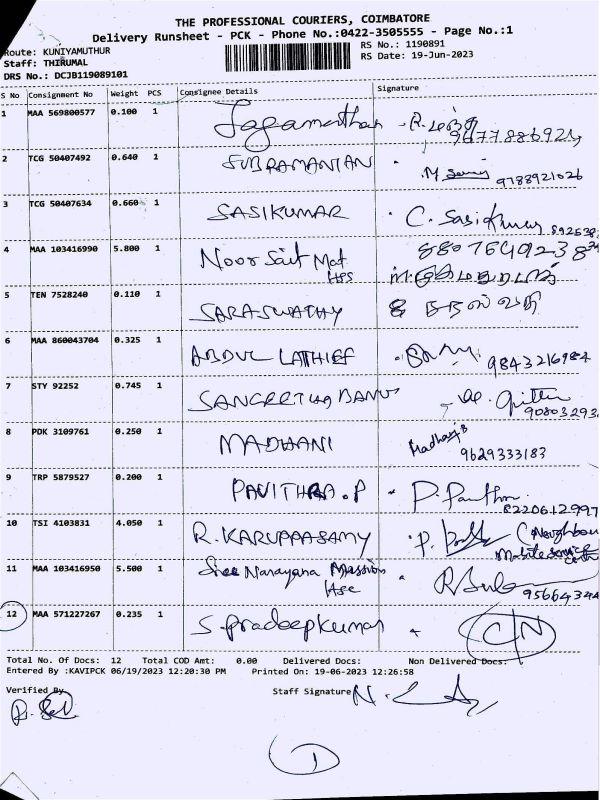 THE PROFESSIONAL COURIERS, COIMBATORE
Delivery Runsheet - PCK - Phone No.:0422-3505555 - Page No.:1
Route: KUNIYAMUTHUR
RS No.: 1190891
Staff: THIRUMAL
RS Date: 19-Jun-2023
DRS No.: DCJB119089101
S No Consignment No Weight PCS Consignee Details Signature
1 MAA 569800577 0.100 1 Jaganathan
9677886921
2 TCG 50407492 0.640 1 SUBRAMANIAN
9788921026
3 TCG 50407634 0.660 1 SASIKUMAR C. Sasikumar
4 MAA 103416990 5.800 1 Noor Sait Mat
Hps
5 TEN 7528240 0.110 1 SARASWATHY
6 MAA 860043704 0.325 1 ABDUL LATHIEF 9843216984
7 STY 92252 0.745 1 SANGEETHA BANU
90803293
8 PDK 3109761 0.250 1 MADHANI
9629333183
9 TRP 5879527 0.200 1 PAVITHRA.P P.
8220612997
10 TSI 4103831 4.050 1 R. KARUPPASAMY
Mobile service
11 MAA 103416950 5.500 1 Sree Narayana Mission
Hse
12 MAA 571227267 0.235 1 S. Pradeepkumar CN
Total No. Of Docs: 12 Total COD Amt: 0.00 Delivered Docs: Non Delivered Docs:
Entered By :KAVIPCK 06/19/2023 12:20:30 PM Printed On: 19-06-2023 12:26:58
Verified By
Staff Signature
1